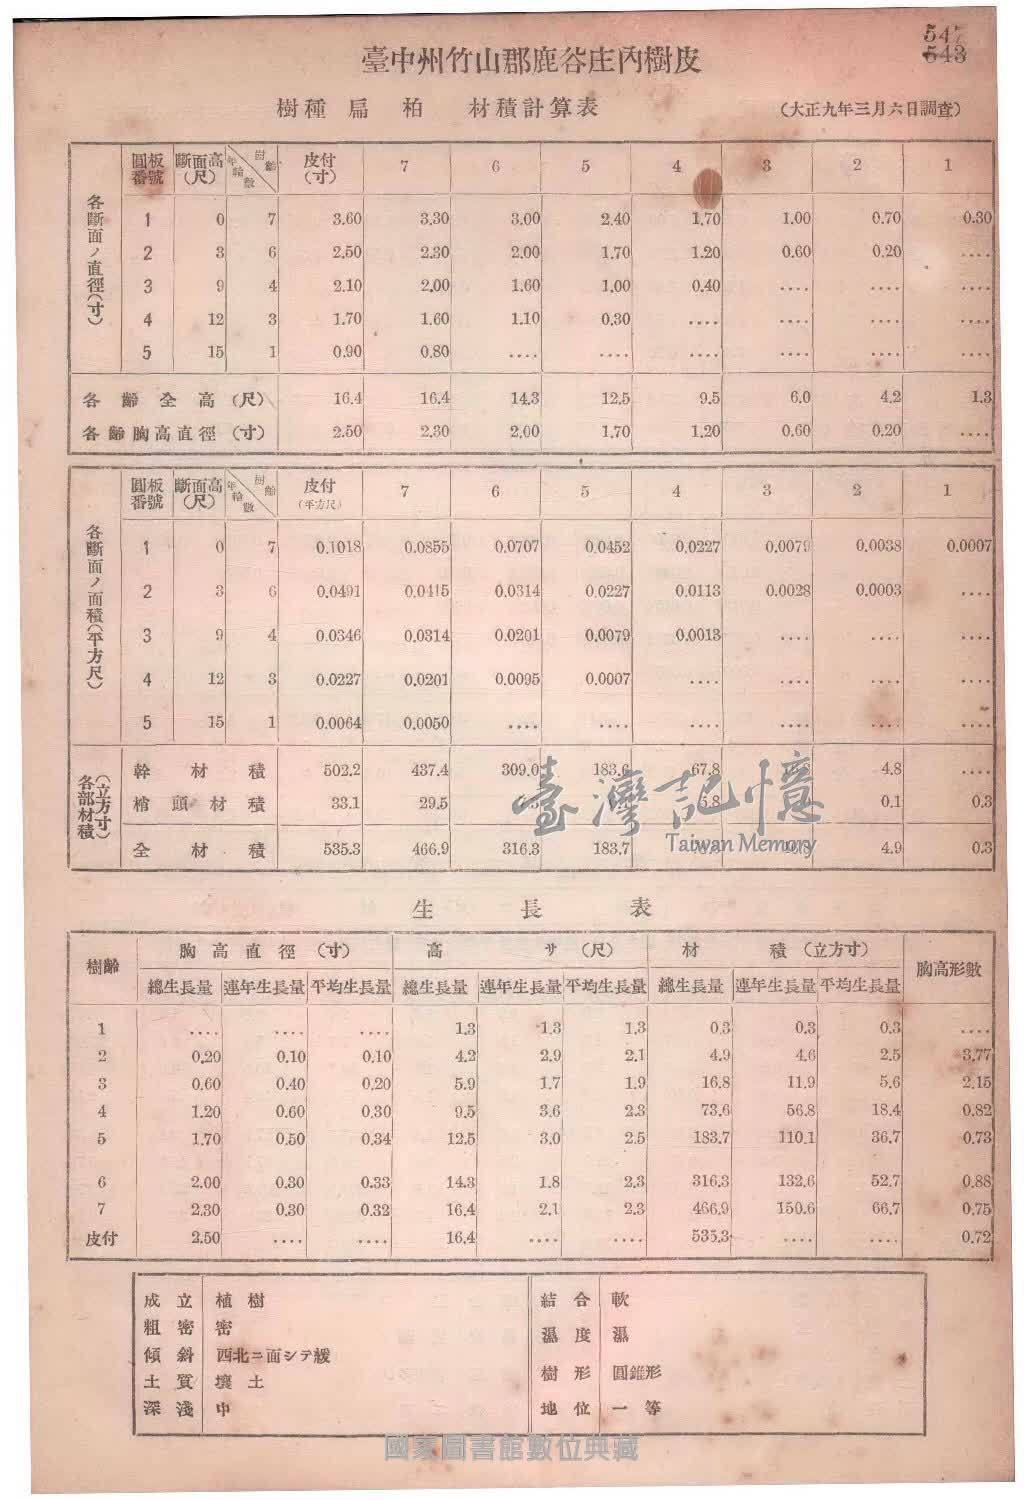 547
543
臺中州竹山郡鹿谷庄內樹皮
樹種 扁 柏 材積計算表 (大正九年三月六日調査)
各斷面ノ直徑(寸)
圓板番號 斷面高(尺) 樹齡 年輪數 皮付(寸) 7 6 5 4 3 2 1
1 0 7 3.60 3.30 3.00 2.40 1.70 1.00 0.70 0.30
2 3 6 2.50 2.30 2.00 1.70 1.20 0.60 0.20 ....
3 9 4 2.10 2.00 1.60 1.00 0.40 .... .... ....
4 12 3 1.70 1.60 1.10 0.30 .... .... .... ....
5 15 1 0.90 0.80 .... .... .... .... .... ....
各齡全高(尺) 16.4 16.4 14.3 12.5 9.5 6.0 4.2 1.3
各齡胸高直徑(寸) 2.50 2.30 2.00 1.70 1.20 0.60 0.20 ....
各斷面ノ面積(平方尺)
圓板番號 斷面高(尺) 樹齡 年輪數 皮付(平方尺) 7 6 5 4 3 2 1
1 0 7 0.1018 0.0855 0.0707 0.0452 0.0227 0.0079 0.0038 0.0007
2 3 6 0.0491 0.0415 0.0314 0.0227 0.0113 0.0028 0.0003 ....
3 9 4 0.0346 0.0314 0.0201 0.0079 0.0013 .... .... ....
4 12 3 0.0227 0.0201 0.0095 0.0007 .... .... .... ....
5 15 1 0.0064 0.0050 .... .... .... .... .... ....
各部材積(立方寸)
幹材積 502.2 437.4 309.0 183.6 67.8 4.8 ....
梢頭材積 33.1 29.5 5.8 0.1 0.3
全材積 535.3 466.9 316.3 183.7 4.9 0.3
臺灣記憶
Taiwan Memory
生長表
樹齡 胸高直徑(寸) 高サ(尺) 材積(立方寸) 胸高形數
總生長量 連年生長量 平均生長量 總生長量 連年生長量 平均生長量 總生長量 連年生長量 平均生長量
1 .... .... .... 1.3 1.3 1.3 0.3 0.3 0.3 ....
2 0.20 0.10 0.10 4.2 2.9 2.1 4.9 4.6 2.5 3.77
3 0.60 0.40 0.20 5.9 1.7 1.9 16.8 11.9 5.6 2.15
4 1.20 0.60 0.30 9.5 3.6 2.3 73.6 56.8 18.4 0.82
5 1.70 0.50 0.34 12.5 3.0 2.5 183.7 110.1 36.7 0.73
6 2.00 0.30 0.33 14.3 1.8 2.3 316.3 132.6 52.7 0.88
7 2.30 0.30 0.32 16.4 2.1 2.3 466.9 150.6 66.7 0.75
皮付 2.50 .... .... 16.4 .... .... 535.3 .... .... 0.72
成立 植樹
粗密 密
傾斜 西北ニ面シテ緩
土質 壤土
深淺 中
結合 軟
濕度 濕
樹形 圓錐形
地位 一等
國家圖書館數位典藏